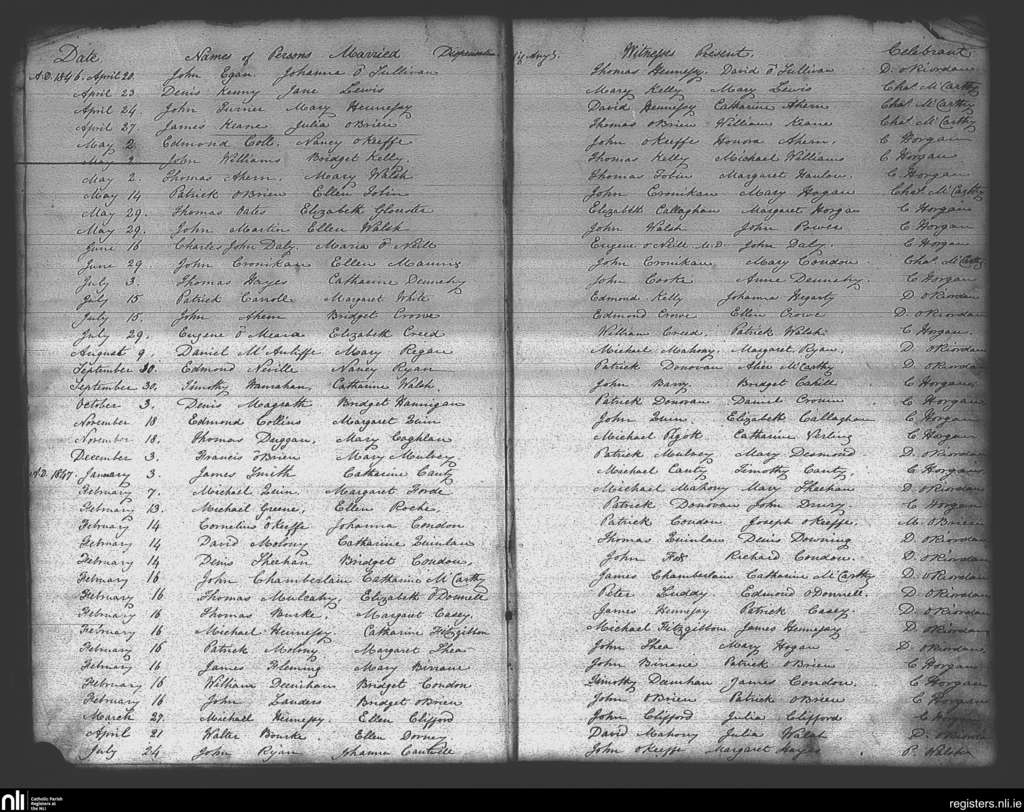 Date Names of Persons Married Dispensation Witnesses Present. Celebrant
A.D. 1846. April 20. John Egan Johanna O'Sullivan Thomas Hennessy David O'Sullivan D. O'Riordan
April 23 Denis Kenny Jane Lewis Mary Kelly Mary Lewis Chas. McCarthy
April 24 John Turner Mary Hennessy David Hennessy Catharine Ahern Chas. McCarthy
April 27. James Keane Julia OBrien Thomas OBrien William Keane Chas. McCarthy
May 2 Edmond Coll. Nancy OKeeffe John OKeiffe Honora Ahern. C Horgan
May 2. John Williams Bridget Kelly. Thomas Kelly Michael Williams C Horgan
May 2. Thomas Ahern. Mary Walsh Thomas Tobin Margaret Hanlon. C. Horgan
May 14 Patrick OBrien Ellen Tobin John Cronikan Mary Hogan Chas. McCarthy
May 29. Thomas Oates Elizabeth Glouster Elizabeth Callaghan Margaret Horgan C Horgan
May 29. John Martin Ellen Walsh John Walsh John Power C Horgan
June 16 Charles John Daly. Maria O'Neill Eugene O'Neill M.D. John Daly. C Horgan
June 29. John Cronikan Ellen Manning John Cronikan Mary Condon Chas. McCarthy
July 3. Thomas Hayes Catharine Dennehy John Cooke Anne Dennehy. C Horgan
July 15 Patrick Carroll Margaret White Edmond Kelly Johanna Hegarty D. ORiordan
July 15. John Ahern Bridget Crowe Edmond Crowe Ellen Crowe D. ORiordan
July 29. Eugene O'Meara Elizabeth Creed William Creed. Patrick Walsh C Horgan.
August 9. Daniel McAuliffe Mary Regan Michael Mahony. Margaret Ryan. D. ORiordan
September 30. Edmond Neville Nancy Ryan Patrick Donovan Alice McCarthy D. ORiordan
September 30. Timothy Hanrahan, Catharine Walsh. John Barry Bridget Cahill C Horgan
October 3. Denis Magrath Bridget Hannigan Patrick Donovan Daniel Cronin C Horgan
November 18 Edmond Collins Margaret Quin John Quin Elizabeth Callaghan C Horgan
November 18. Thomas Duggan. Mary Coghlan Michael Pigott Catharine Verling C Horgan
December 3. Francis OBrien Mary Mulvey Patrick Mulvey Mary Desmond. D. ORiordan
A.D. 1847. January 3 James Smith Catharine Canty Michael Canty Timothy Canty. C Horgan
February 7. Michael Quin. Margaret Forde Michael Mahony Mary Sheehan D. ORiordan
February 13. Michael Greene, Ellen Roche. Patrick Donovan John Drury. C Horgan
February 14 Cornelius O'Keeffe Johanna Condon Patrick Condon Joseph OKeeffe. M. OBrien
February 14 David Molony Catharine Quinlan Thomas Quinlan Denis Downing D. ORiordan
February 14 Denis Sheehan Bridget Condon, John Fox Richard Condon. D. ORiordan
February 16 John Chamberlain Catharine McCarthy James Chamberlain Catharine McCarthy D. ORiordan
February 16 Thomas Mulcahy, Elizabeth O'Donnell Peter Luddy Edmond ODonnell. D. ORiordan
February 16 Thomas Burke. Margaret Casey. James Hennessy Patrick Casey. D. ORiordan
February 16 Michael Hennessy. Catharine Fitzgibbon Michael Fitzgibbon James Hennessy D ORiordan
February 16 Patrick Molony Margaret Shea John Shea Mary Hogan D. ORiordan.
February 16 James Fleming Mary Binane John Binane Patrick OBrien C Horgan
February 16 William Deenihan Bridget Condon Timothy Deenihan James Condon. C Horgan
February 16 John Landers Bridget OBrien John OBrien Patrick OBrien C Horgan
March 27. Michael Hennessy. Ellen Clifford John Clifford Julia Clifford C Horgan
April 21 Walter Bourke. Ellen Dorney David Mahony Julia Walsh D. ORiordan
July 24 John Ryan Johanna Cantwell John OKeeffe Margaret Hayes P. Walsh
nli Catholic Parish Registers at the NLI
registers.nli.ie